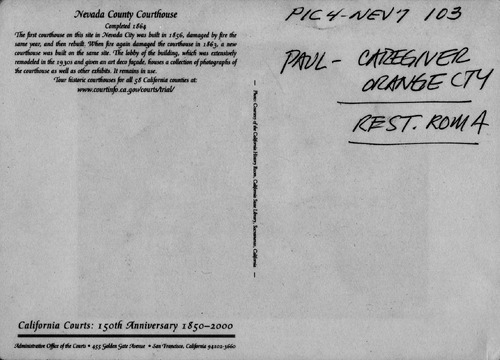 Nevada County Courthouse
Completed 1864
The first courthouse on this site in Nevada City was built in 1856, damaged by fire the
same year, and then rebuilt. When fire again damaged the courthouse in 1863, a new
courthouse was built on the same site. The lobby of the building, which was extensively
remodeled in the 1930s and given an art deco façade, houses a collection of photographs of
the courthouse as well as other exhibits. It remains in use.
Tour historic courthouses for all 58 California counties at:
www.courtinfo.ca.gov/courts/trial/
PIC4-NEV7 103
PAUL - CAREGIVER
ORANGE CTY
REST. ROMA
— Photo: Courtesy of the California History Room, California State Library, Sacramento, California —
California Courts: 150th Anniversary 1850–2000
Administrative Office of the Courts • 455 Golden Gate Avenue • San Francisco, California 94102-3660